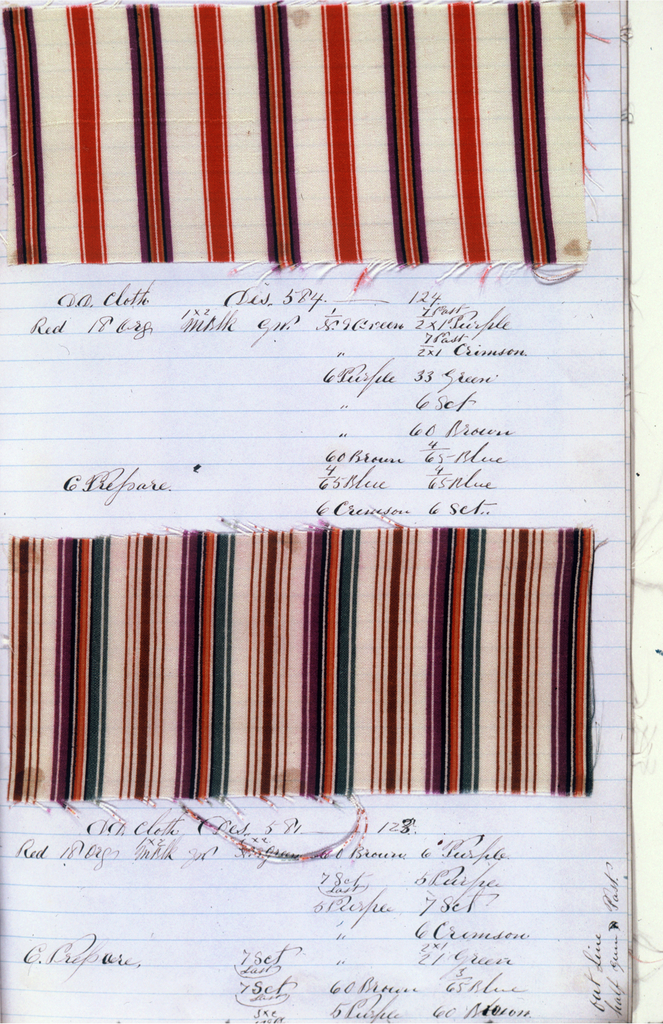 D.D. Cloth Des. 584. — 124
Red 18 Org 1x2 Green 7 Past 2x1 Purple
" 7 Past 2x1 Crimson
6 Purple 33 Green
" 6 Set
" 60 Brown
60 Brown 4/65 Blue
C. Prepare. 4/65 Blue 4/65 Blue
6 Crimson 6 Set..
D.D. Cloth Des. 581 — 123.
Red 18 Org 60 Brown 6 Purple.
7 Set Last 5 Purple
5 Purple 7 Set
" 6 Crimson
C. Prepare. 7 Set Last " 2x1 Green
7 Set Last 60 Brown 3/65 Blue
5 Purple 60 Brown
out line
half gum Past